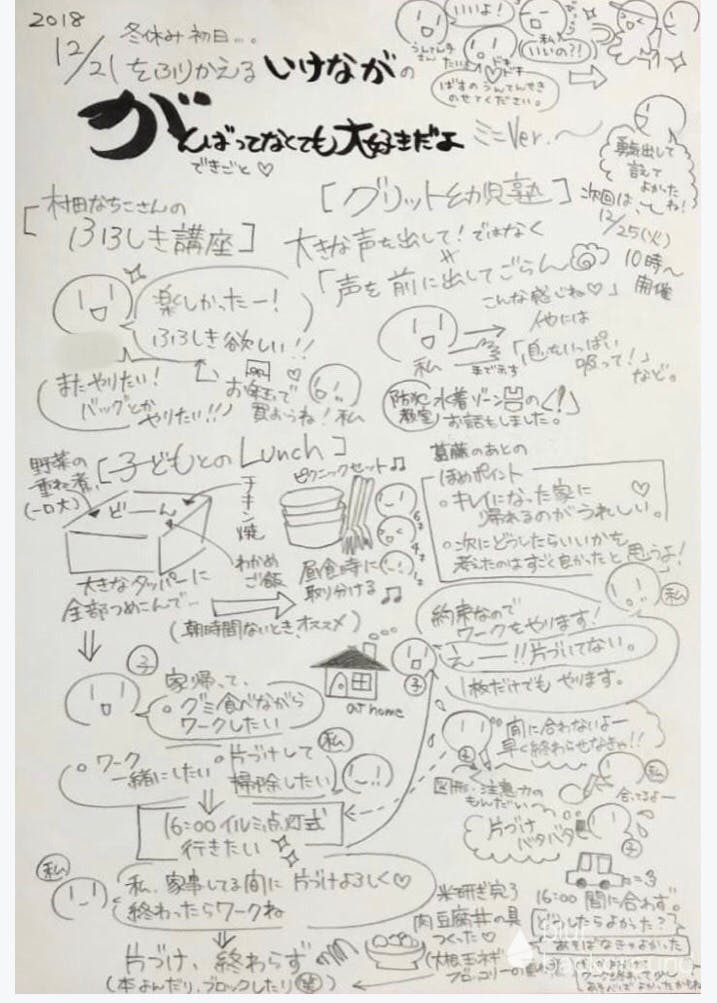 2018
12/21 冬休み初日…。
をふりかえる いけながの
がんばってなくても大好きだよ
ミニVer.〜
できごと♡
いいよ!
うんてん手さん
ドキドキ
ばすのうんてんせき
のせてください。
私
いいの?!
勇気出して
言えて
よかった
ね!
[村田なちこさんの
ふろしき講座]
楽しかったー!
ふろしき欲しい!!
またやりたい!
バッグとか
やりたい!!
お年玉で
買おうね!
私
[グリット幼児塾]
次回は、
12/25(火)
10時〜
開催
大きな声を出して!ではなく
「声を前に出してごらん」
こんな感じね♡
私
他には
「息をいっぱい
吸って!」
など。
防犯教室
水着ゾーンの
お話もしました。
[子どもとのLunch]
野菜の
重ね煮
(一口大)
どーん
チキン焼
わかめ
ご飯
大きなタッパーに
全部つめこんで…
ピクニックセット♫
昼食時に
取り分ける♫
(朝時間ないとき、オススメ)
葛藤のあとの
ほめポイント
・キレイになった家に
帰れるのがうれしい。♡
・次にどうしたらいいかを
考えたのはすごく良かったと思うよ!
私
約束なので
ワークをやります!
えー!!片づいてない。
1枚だけでもやります。
子
家帰って、
○グミ食べながら
ワークしたい
at home
子
○ワーク
一緒にしたい
○片づけして
掃除したい
私
間に合わないよー
早く終わらせなきゃ!!
図形・注意力の
もんだい〜
私
合ってるよー
片づけ
バタバタ
16:00 イルミ点灯式
行きたい
私
私、家事してる間に片づけよろしく♡
終わったらワークね
片づけ、終わらず
(本よんだり、ブロックしたり 笑)
米研ぎ完了
肉豆腐丼の具
つくった♡
16:00 間に合わず。
どうしたらよかった?
あそばなきゃよかった
blue background